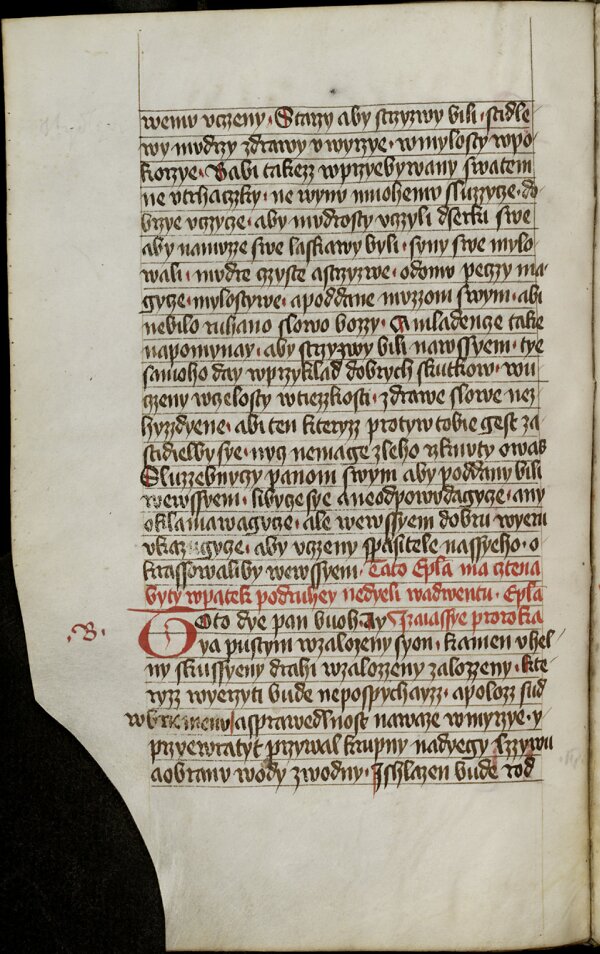 wemu vczeny · Starzy aby strzyzwy bili · stidle
wy mudrzy zdrawy v wyrzye · w mylosty w po
korzye · Babi takezz w przyebywany swatem
ne vtrhaczky · ne wynu mnohemu sluzzycze · do
brzye vczycze · aby mudrosty vczyli dserku swe
aby na muze swe laskawy byli · syny swe mylo
wali · mudre czyste a strzyzwe · o domo peczy ma
gycze · mylostywe · a poddane muzzom swym · abi
nebilo ruhano slowo bozzy · A mladencze take
napomynay · aby strzyzwy bili na wssyem · tye
samoho day w przyklad dobrych skutkow · w u
czeny w czelosty w tiezzkosti · zdrawe slowe nez
hyzzdyene · abi ten kteryzz protyw tobie gest za
stidielby sye · nycz nemage zleho rzknuty o was
Sluzzebnyczy panom swym aby poddany bili
we wssyem · libycze sye a neodpowydagycze · any
oklamawagycze · ale we wssyem dobru wyeru
vkazugycze · aby vczeny spasitele nassyeho · o
krassowali by we wssyem · Tato Epla ma cztena
byty w patek po druhey nedyeli w adwentu · Epla
·B· Toto dye pan buoh Ay Izaiassye proroka
ya pustym w zalozeny syon · kamen vhel
ny skussyeny drahi w zalozzeny zalozzeny · kte
ryzz wyerzyti bude nepospychayzz · a polozz sud
w brzmenu a sprawedlnost na waze w myrzye · y
przyewratyt przywal krupny nadyegy lzzywu
a obranu wody zwodny · I shlazen bude rod